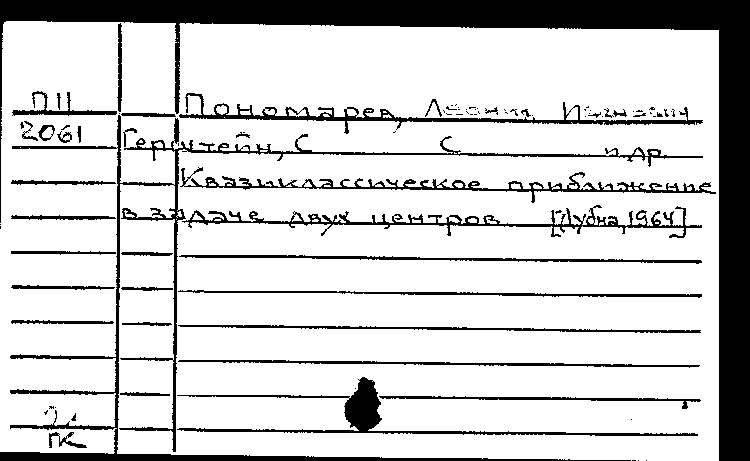 П11 Пономарев, Леонид Иванович
2061 Герштейн, С С и др.
Квазиклассическое приближение
в задаче двух центров [Дубна, 1964]
ГК